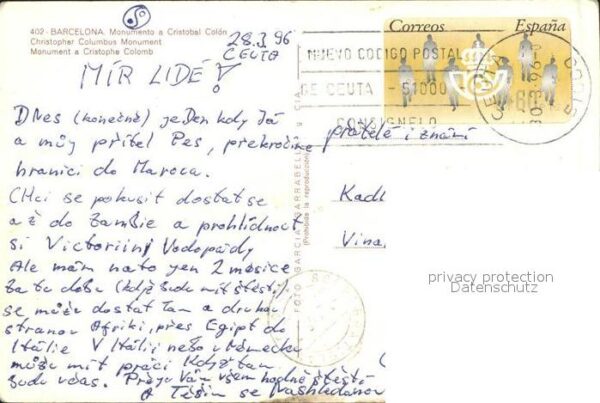 402 - BARCELONA. Monumento a Cristobal Colón
Christopher Columbus Monument
Monument a Cristophe Colomb
28.I 96
CEUTA
MÍR LIDÉ!
Dnes (konečně) jeden kdy Já
a můj přítel Pes, překročíme
hranici do Maroca.
CHci se pokusit dostat se
až do Zambie a prohlídnout
si Victoriiny Vodopády
Ale mám na to jen 2 měsíce
Za tu dobu (když budu mít štěstí)
se můžu dostat tam a druhou
stranou Afriky, přes Egipt do
Itálie V Itálii nebo v Německu
můžu mít práci Když tam
budu včas. Přeju Vám všem hodně štěstí
A Těším se Nashledanou
přátelé i známí
Kadl
Vina
FOTO GARCIA GARRABELLA y CIA
(Prohibida la reproducción)
Correos España
NUEVO CODIGO POSTAL
DE CEUTA - 51000
CONSIGNELO
CEUTA
privacy protection
Datenschutz